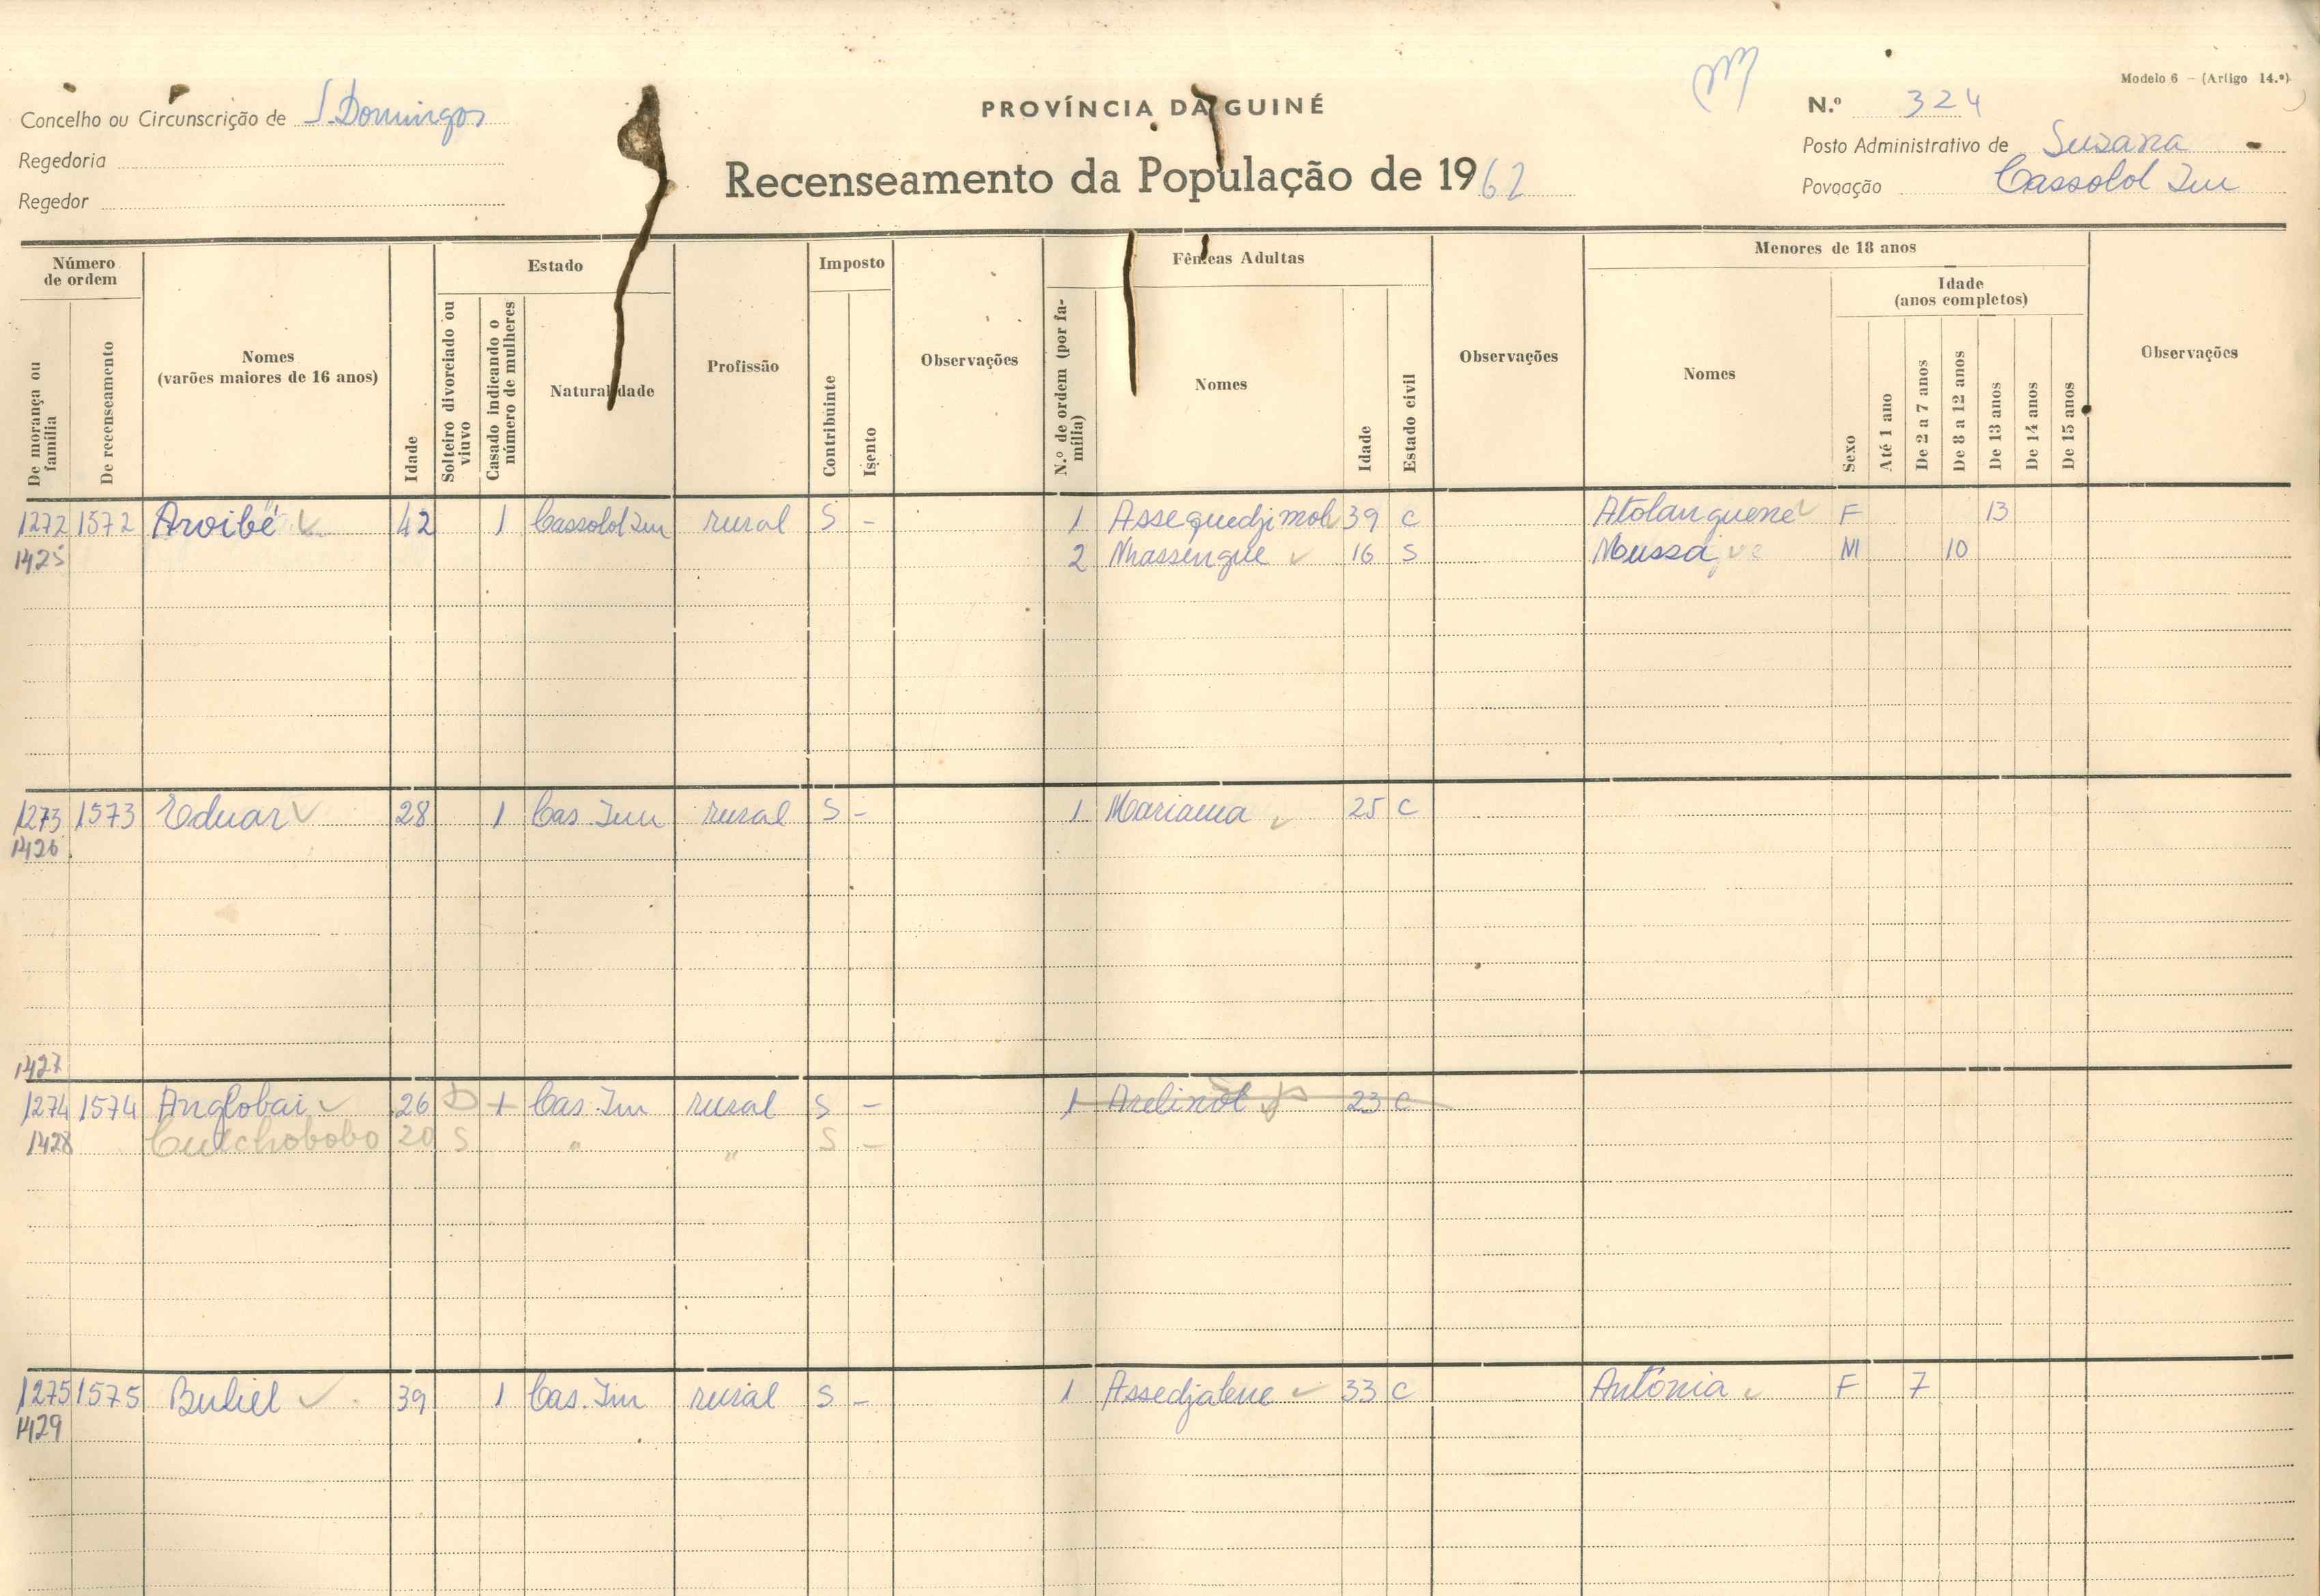 Modelo 6 — (Artigo 14.º)
Concelho ou Circunscrição de S. Domingos
PROVÍNCIA DA GUINÉ
N.º 324
Regedoria
Posto Administrativo de Suzana
Regedor
Recenseamento da População de 1962
Povoação Cassolol Im
Número de ordem
Estado
Imposto
Fêmeas Adultas
Menores de 18 anos
Idade (anos completos)
De morança ou família
De recenseamento
Nomes (varões maiores de 16 anos)
Idade
Solteiro divorciado ou viuvo
Casado indicando o número de mulheres
Naturalidade
Profissão
Contribuinte
Isento
Observações
N.º de ordem (por família)
Nomes
Idade
Estado civil
Observações
Nomes
Sexo
Até 1 ano
De 2 a 7 anos
De 8 a 12 anos
De 13 anos
De 14 anos
De 15 anos
Observações
1272 1572 Aroibé 42 1 Cassolol Im rural S - 1 Assequedjimol 39 C Atolanguene F 13
1425 2 Nhassengue 16 S Mussa M 10
1273 1573 Eduar 28 1 Cas. Im rural S - 1 Mariama 25 C
1426
1427
1274 1574 Anglobai 26 D 1 Cas. Im rural S - 1 Arelinol 23 C
1428 Culchobobo 20 S " " S -
1275 1575 Buliel 39 1 Cas. Im rural S - 1 Assedjalene 33 C Antónia F 7
1429